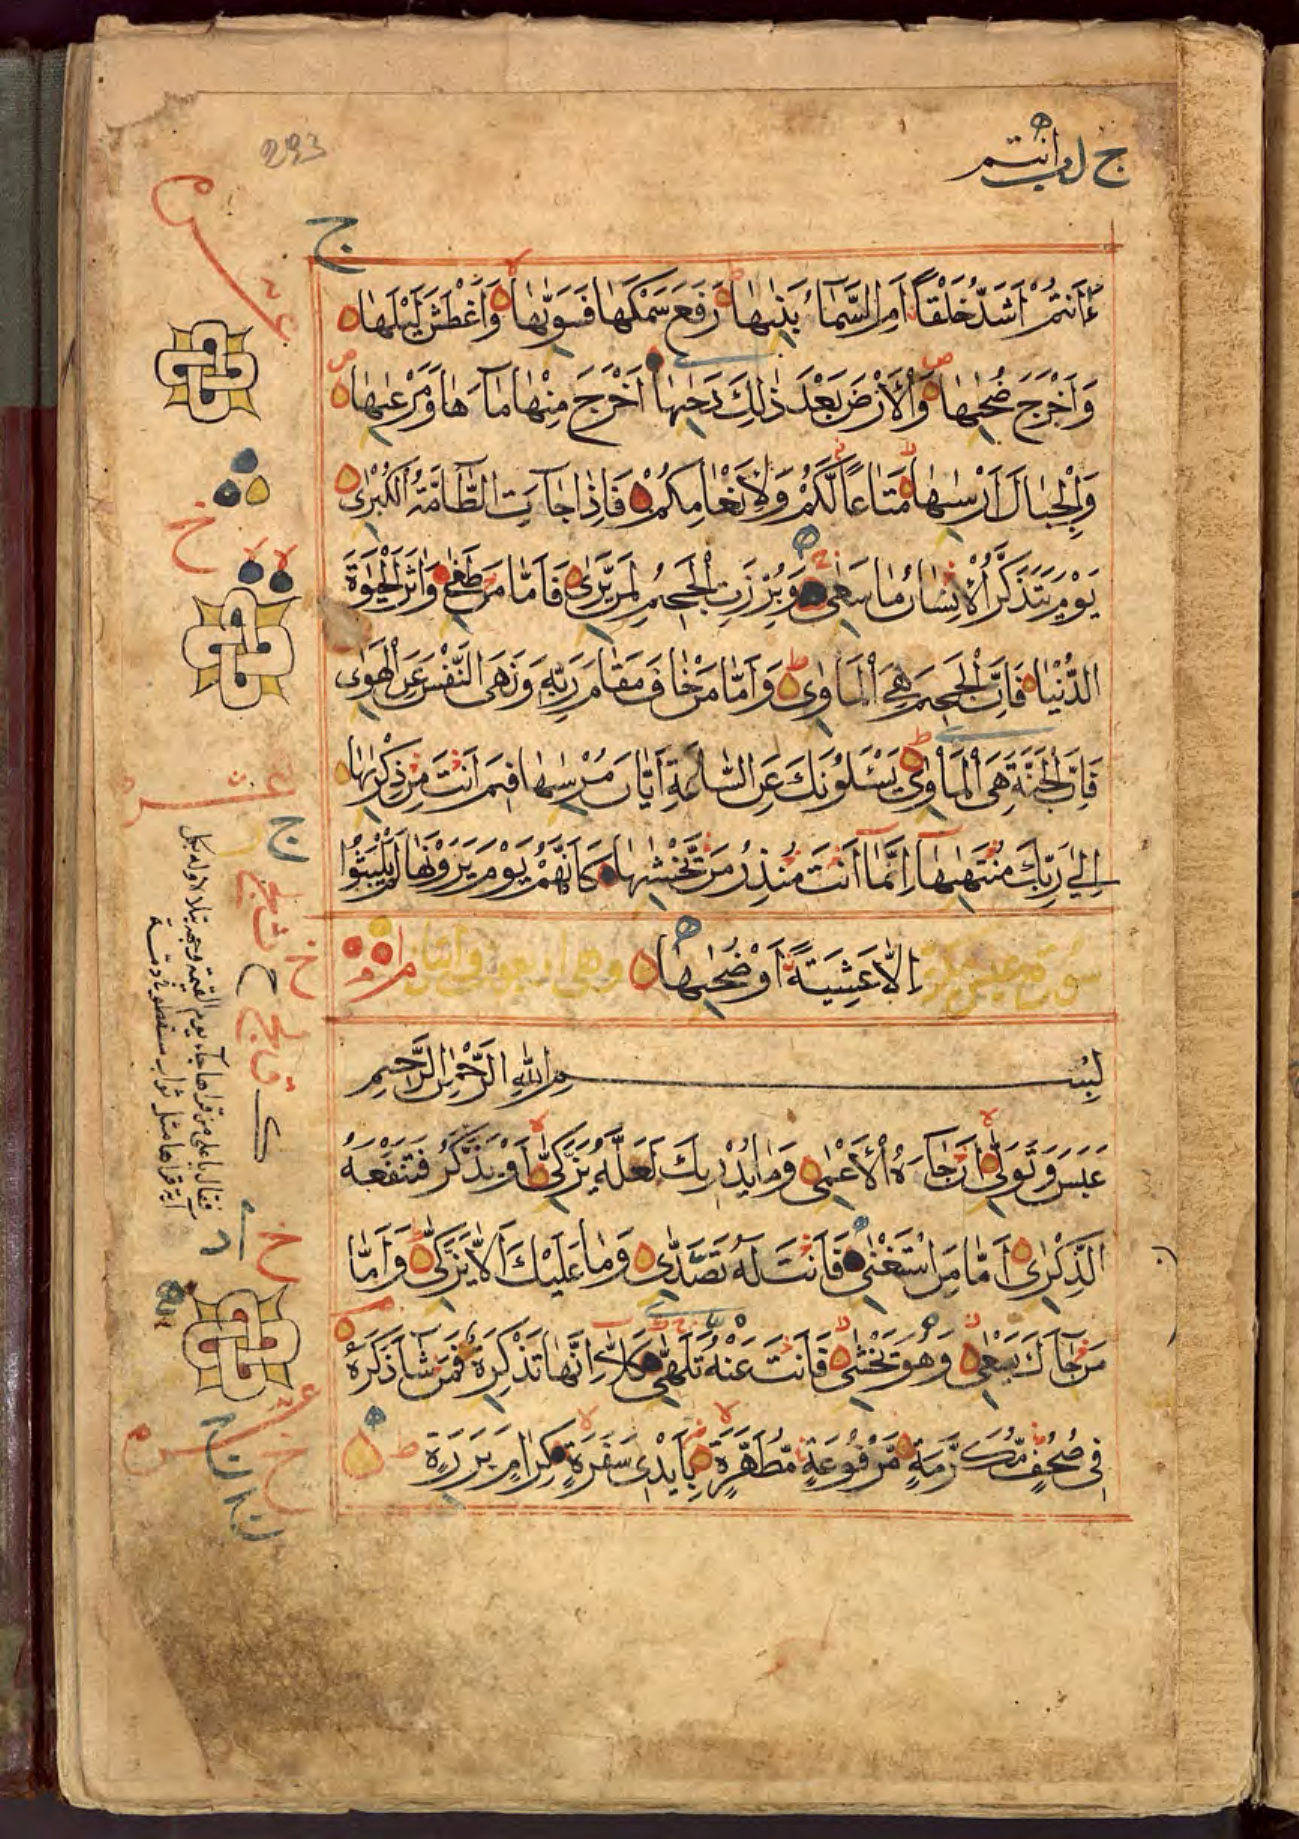 293
ءَاَنْتُمْ اَشَدُّ خَلْقًا اَمِ السَّمَآءُ بَنٰىهَا رَفَعَ سَمْكَهَا فَسَوّٰىهَا وَاَغْطَشَ لَيْلَهَا
وَاَخْرَجَ ضُحٰىهَا وَالْاَرْضَ بَعْدَ ذٰلِكَ دَحٰىهَا اَخْرَجَ مِنْهَا مَآءَهَا وَمَرْعٰىهَا
وَالْجِبَالَ اَرْسٰىهَا مَتَاعًا لَّكُمْ وَلِاَنْعَامِكُمْ فَاِذَا جَآءَتِ الطَّآمَّةُ الْكُبْرٰى
يَوْمَ يَتَذَكَّرُ الْاِنْسَانُ مَا سَعٰى وَبُرِّزَتِ الْجَحِيْمُ لِمَنْ يَّرٰى فَاَمَّا مَنْ طَغٰى وَاٰثَرَ الْحَيٰوةَ
الدُّنْيَا فَاِنَّ الْجَحِيْمَ هِيَ الْمَاْوٰى وَاَمَّا مَنْ خَافَ مَقَامَ رَبِّهٖ وَنَهَى النَّفْسَ عَنِ الْهَوٰى
فَاِنَّ الْجَنَّةَ هِيَ الْمَاْوٰى يَسْـَٔلُوْنَكَ عَنِ السَّاعَةِ اَيَّانَ مُرْسٰىهَا فِيْمَ اَنْتَ مِنْ ذِكْرٰىهَا
اِلٰى رَبِّكَ مُنْتَهٰىهَا اِنَّمَآ اَنْتَ مُنْذِرُ مَنْ يَّخْشٰىهَا كَاَنَّهُمْ يَوْمَ يَرَوْنَهَا لَمْ يَلْبَثُوْٓا
اِلَّا عَشِيَّةً اَوْ ضُحٰىهَا
بِسْمِ اللهِ الرَّحْمٰنِ الرَّحِيْمِ
عَبَسَ وَتَوَلّٰى اَنْ جَآءَهُ الْاَعْمٰى وَمَا يُدْرِيْكَ لَعَلَّهٗ يَزَّكّٰى اَوْ يَذَّكَّرُ فَتَنْفَعَهُ
الذِّكْرٰى اَمَّا مَنِ اسْتَغْنٰى فَاَنْتَ لَهٗ تَصَدّٰى وَمَا عَلَيْكَ اَلَّا يَزَّكّٰى وَاَمَّا
مَنْ جَآءَكَ يَسْعٰى وَهُوَ يَخْشٰى فَاَنْتَ عَنْهُ تَلَهّٰى كَلَّآ اِنَّهَا تَذْكِرَةٌ فَمَنْ شَآءَ ذَكَرَهٗ
فِيْ صُحُفٍ مُّكَرَّمَةٍ مَّرْفُوْعَةٍ مُّطَهَّرَةٍ بِاَيْدِيْ سَفَرَةٍ كِرَامٍ بَرَرَةٍ